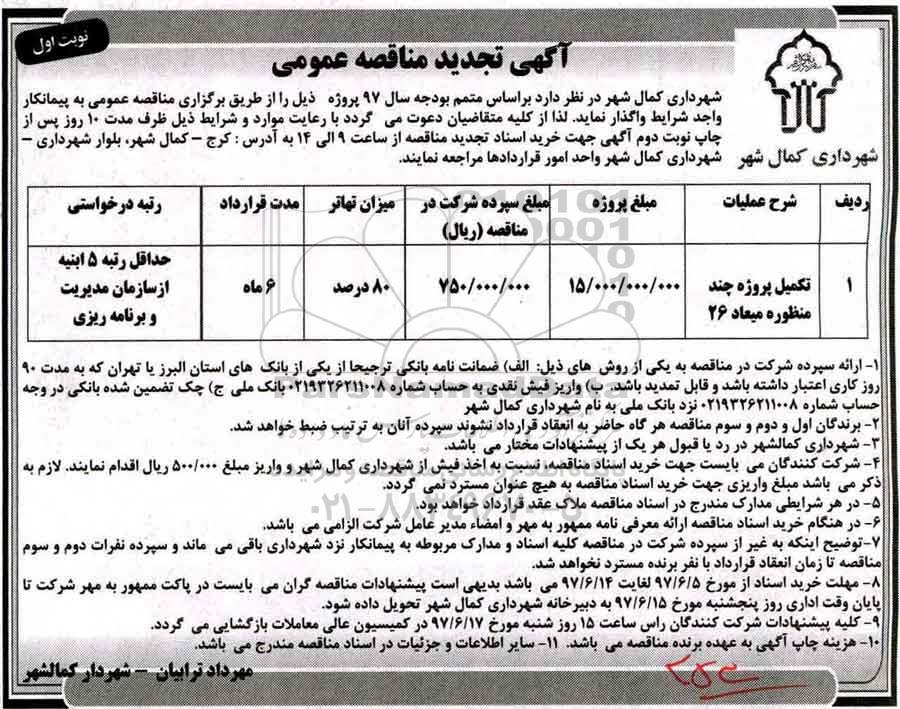 نوبت اول
آگهی تجدید مناقصه عمومی
شهرداری کمال شهر
شهرداری کمال شهر در نظر دارد براساس متمم بودجه سال ۹۷ پروژه ذیل را از طریق برگزاری مناقصه عمومی به پیمانکار
واجد شرایط واگذار نماید. لذا از کلیه متقاضیان دعوت می گردد با رعایت موارد و شرایط ذیل ظرف مدت ۱۰ روز پس از
چاپ نوبت دوم آگهی جهت خرید اسناد تجدید مناقصه از ساعت ۹ الی ۱۴ به آدرس : کرج – کمال شهر، بلوار شهرداری –
شهرداری کمال شهر واحد امور قراردادها مراجعه نمایند.
ردیف شرح عملیات مبلغ پروژه مبلغ سپرده شرکت در مناقصه (ریال) میزان تهاتر مدت قرارداد رتبه درخواستی
۱ تکمیل پروژه چند منظوره میعاد ۲۶ ۱۵/۰۰۰/۰۰۰/۰۰۰ ۷۵۰/۰۰۰/۰۰۰ ۸۰ درصد ۶ ماه حداقل رتبه ۵ ابنیه ازسازمان مدیریت و برنامه ریزی
۱- ارائه سپرده شرکت در مناقصه به یکی از روش های ذیل: الف) ضمانت نامه بانکی ترجیحا از یکی از بانک های استان البرز یا تهران که به مدت ۹۰
روز کاری اعتبار داشته باشد و قابل تمدید باشد. ب) واریز فیش نقدی به حساب شماره ۰۲۱۹۳۲۶۲۱۱۰۰۸ بانک ملی ج) چک تضمین شده بانکی در وجه
حساب شماره ۰۲۱۹۳۲۶۲۱۱۰۰۸ نزد بانک ملی به نام شهرداری کمال شهر
۲- برندگان اول و دوم و سوم مناقصه هر گاه حاضر به انعقاد قرارداد نشوند سپرده آنان به ترتیب ضبط خواهد شد.
۳- شهرداری کمالشهر در رد یا قبول هر یک از پیشنهادات مختار می باشد.
۴- شرکت کنندگان می بایست جهت خرید اسناد مناقصه، نسبت به اخذ فیش از شهرداری کمال شهر و واریز مبلغ ۵۰۰/۰۰۰ ریال اقدام نمایند. لازم به
ذکر می باشد مبلغ واریزی جهت خرید اسناد مناقصه به هیچ عنوان مسترد نمی گردد.
۵- در هر شرایطی مدارک مندرج در اسناد مناقصه ملاک عقد قرارداد خواهد بود.
۶- در هنگام خرید اسناد مناقصه ارائه معرفی نامه ممهور به مهر و امضاء مدیر عامل شرکت الزامی می باشد.
۷-توضیح اینکه به غیر از سپرده شرکت در مناقصه کلیه اسناد و مدارک مربوطه به پیمانکار نزد شهرداری باقی می ماند و سپرده نفرات دوم و سوم
مناقصه تا زمان انعقاد قرارداد با نفر برنده مسترد نخواهد شد.
۸- مهلت خرید اسناد از مورخ ۹۷/۶/۵ لغایت ۹۷/۶/۱۴ می باشد بدیهی است پیشنهادات مناقصه گران می بایست در پاکت ممهور به مهر شرکت تا
پایان وقت اداری روز پنجشنبه مورخ ۹۷/۶/۱۵ به دبیرخانه شهرداری کمال شهر تحویل داده شود.
۹- کلیه پیشنهادات شرکت کنندگان راس ساعت ۱۵ روز شنبه مورخ ۹۷/۶/۱۷ در کمیسیون عالی معاملات بازگشایی می گردد.
۱۰- هزینه چاپ آگهی به عهده برنده مناقصه می باشد. ۱۱- سایر اطلاعات و جزئیات در اسناد مناقصه مندرج می باشد.
مهرداد ترابیان – شهردار کمالشهر